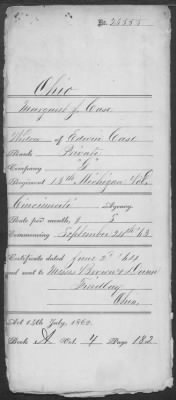 No. 24555
Ohio
Margaret J. Case
Widow of Edwin Case
Rank Private
Company "G"
Regiment 13th Michigan Vols.
Cincinnati Agency.
Rate per month, $ 8
Commencing September 24th 63
Certificate dated June 2d 64
and sent to Messrs Brown &
Findlay
Ohio.
Act 14th July, 1862.
Book A Vol. 4 Page 182